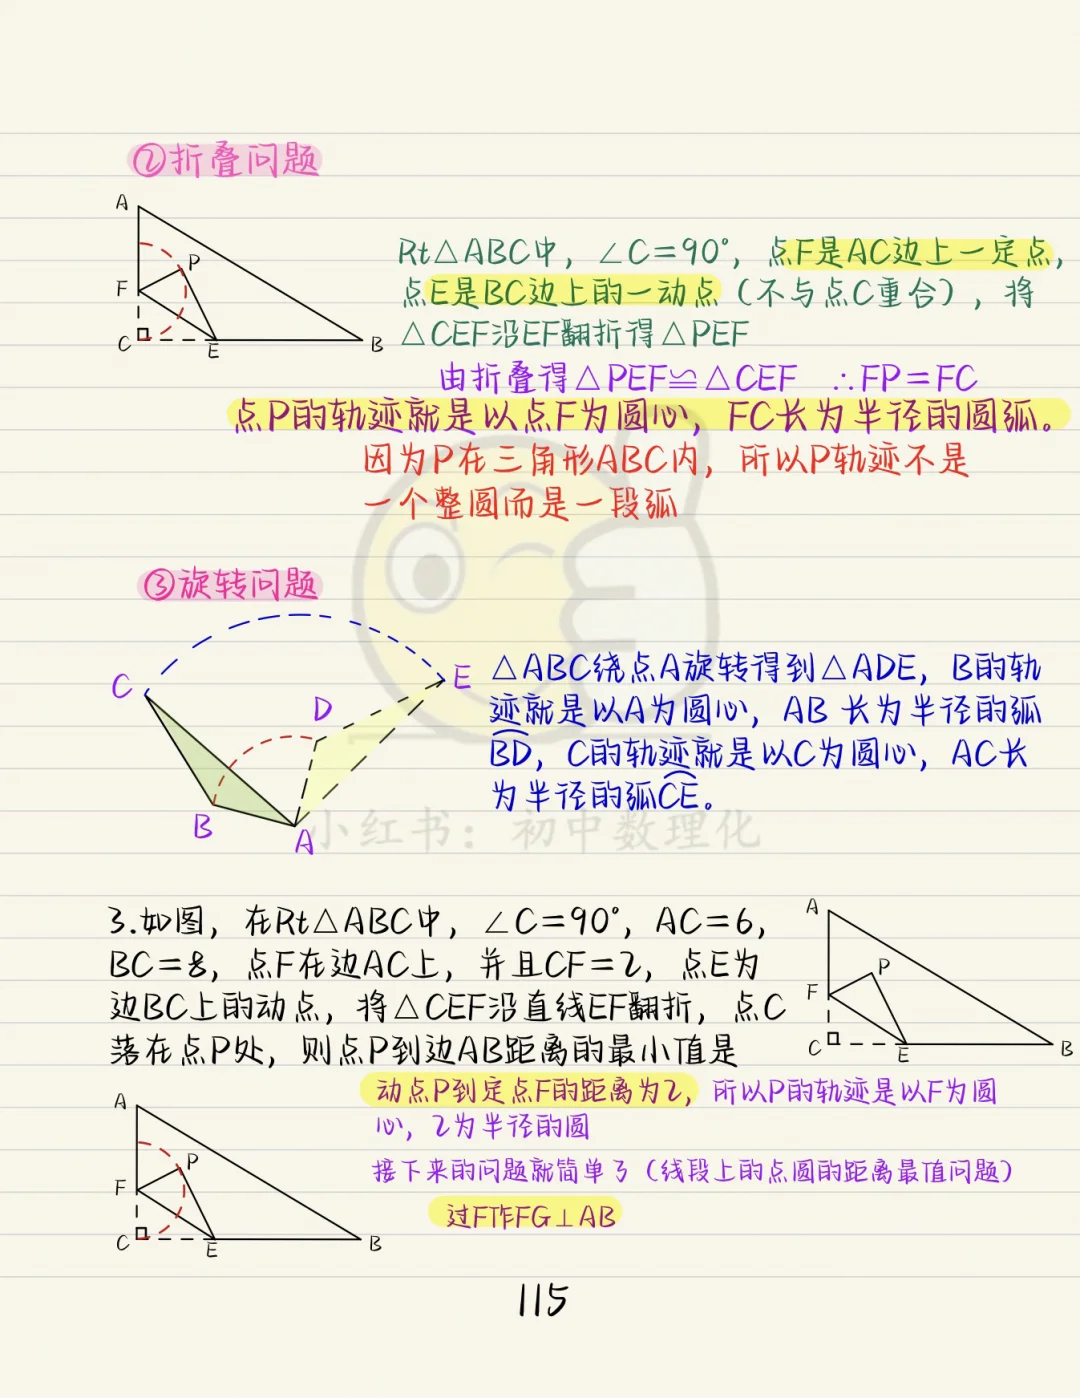 ②折叠问题
A
F
P
C
E
B
Rt△ABC中，∠C=90°，点F是AC边上一定点，
点E是BC边上的一动点（不与点C重合），将
△CEF沿EF翻折得△PEF
由折叠得△PEF≌△CEF ∴FP=FC
点P的轨迹就是以点F为圆心，FC长为半径的圆弧。
因为P在三角形ABC内，所以P轨迹不是
一个整圆而是一段弧
③旋转问题
C
E
D
B
A
△ABC绕点A旋转得到△ADE，B的轨
迹就是以A为圆心，AB 长为半径的弧
BD，C的轨迹就是以C为圆心，AC长
为半径的弧CE。
小红书：初中数理化
3.如图，在Rt△ABC中，∠C=90°，AC=6，
BC=8，点F在边AC上，并且CF=2，点E为
边BC上的动点，将△CEF沿直线EF翻折，点C
落在点P处，则点P到边AB距离的最小值是
A
P
F
C
E
B
动点P到定点F的距离为2，所以P的轨迹是以F为圆
心，2为半径的圆
接下来的问题就简单了（线段上的点圆的距离最值问题）
过F作FG⊥AB
A
P
F
C
E
B
115